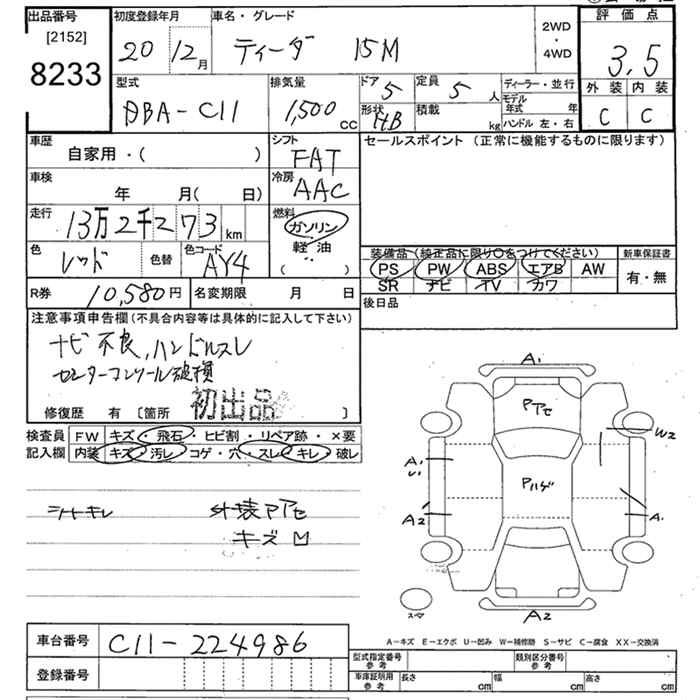 出品番号
[2152]
8233
初度登録年月
20 12月
車名・グレード
ティーダ 15M
2WD
・
4WD
評価点
3.5
外装 内装
C C
型式
DBA-C11
排気量
1,500 CC
ドア 5
定員 5 人
形状 HB
積載 kg
ディーラー・並行
モデル年式 年
ハンドル 左・右
車歴
自家用・( )
シフト
FAT
冷房
AAC
セールスポイント (正常に機能するものに限ります)
車検
年 月( 日)
走行 13万2千273 km
燃料
ガソリン
軽油
( )
色 レッド 色替 色コード AY4
装備品(純正品に限り○をつけてください) 新車保証書
PS PW ABS エアB AW
SR ナビ TV カワ
有・無
R券 10,580円 名変期限 月 日
後日品
注意事項申告欄(不具合内容等は具体的に記入して下さい)
ナビ不良,ハンドルスレ
センターコンソール破損
初出品
修復歴 有 [箇所 ]
検査員 FW キズ・飛石・ヒビ割・リペア跡・×要
記入欄 内装 キズ・汚レ・コゲ・穴・スレ・キレ・破レ
シートキレ 外装Pアセ
キズ凹
A1
Pアセ
W2
A1
Pハゲ
A2
A1
スマ
A2
A-キズ E-エクボ U-凹み W-補修跡 S-サビ C-腐食 XX-交換済
車台番号 C11-224986
登録番号
型式指定番号 参考
類別区分番号 参考
車庫証明用 参考 長さ cm 幅 cm 高さ cm